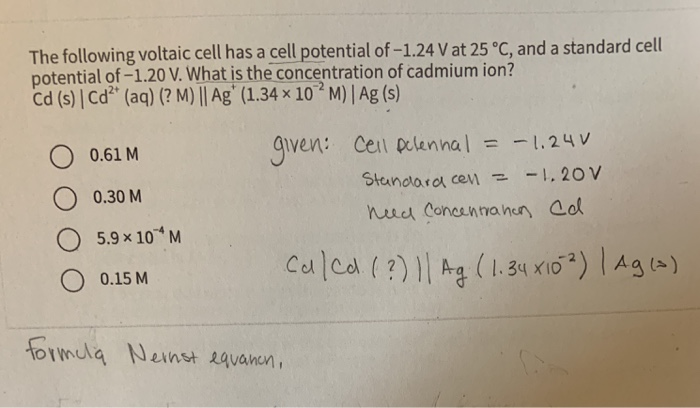 The following voltaic cell has a cell potential of −1.24 V at 25 °C, and a standard cell
potential of −1.20 V. What is the concentration of cadmium ion?
Cd (s) | Cd²⁺ (aq) (? M) || Ag⁺ (1.34 × 10⁻² M) | Ag (s)
given: Cell potennal = -1.24V
0.61 M
Standard cell = -1.20V
0.30 M
need Concentration Cd
5.9 × 10⁻⁴ M
Cd|Cd (?) || Ag (1.34 x10⁻²) | Ag(s)
0.15 M
formula Nernst equation,